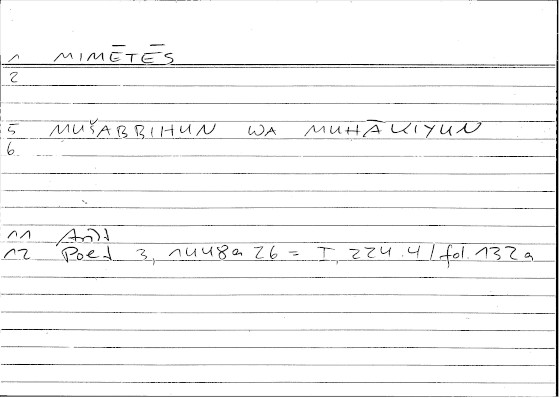 1 MIMĒTĒS
2
5 MUŠABBIHUN WA MUHĀKIYUN
6
11 Arist
12 Poet 3, 1448a26 = T, 224.4 / fol. 132a